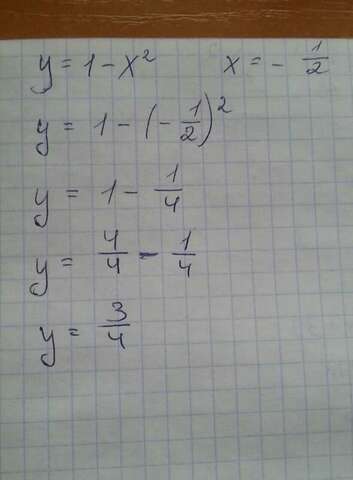 y = 1 - x² x = - 1/2
y = 1 - (- 1/2)²
y = 1 - 1/4
y = 4/4 - 1/4
y = 3/4